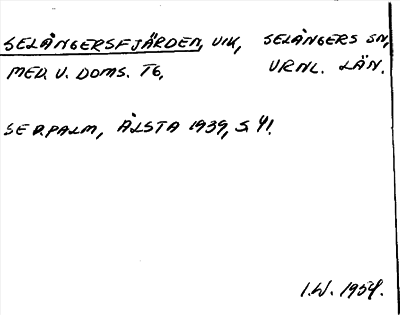 SELÅNGERSFJÄRDEN, VIK, SELÅNGERS SN,
MED. V. DOMS. TG, VRNL. LÄN.
SE D. PALM, ÄLSTA 1939, S. 41.
I.W. 1954.